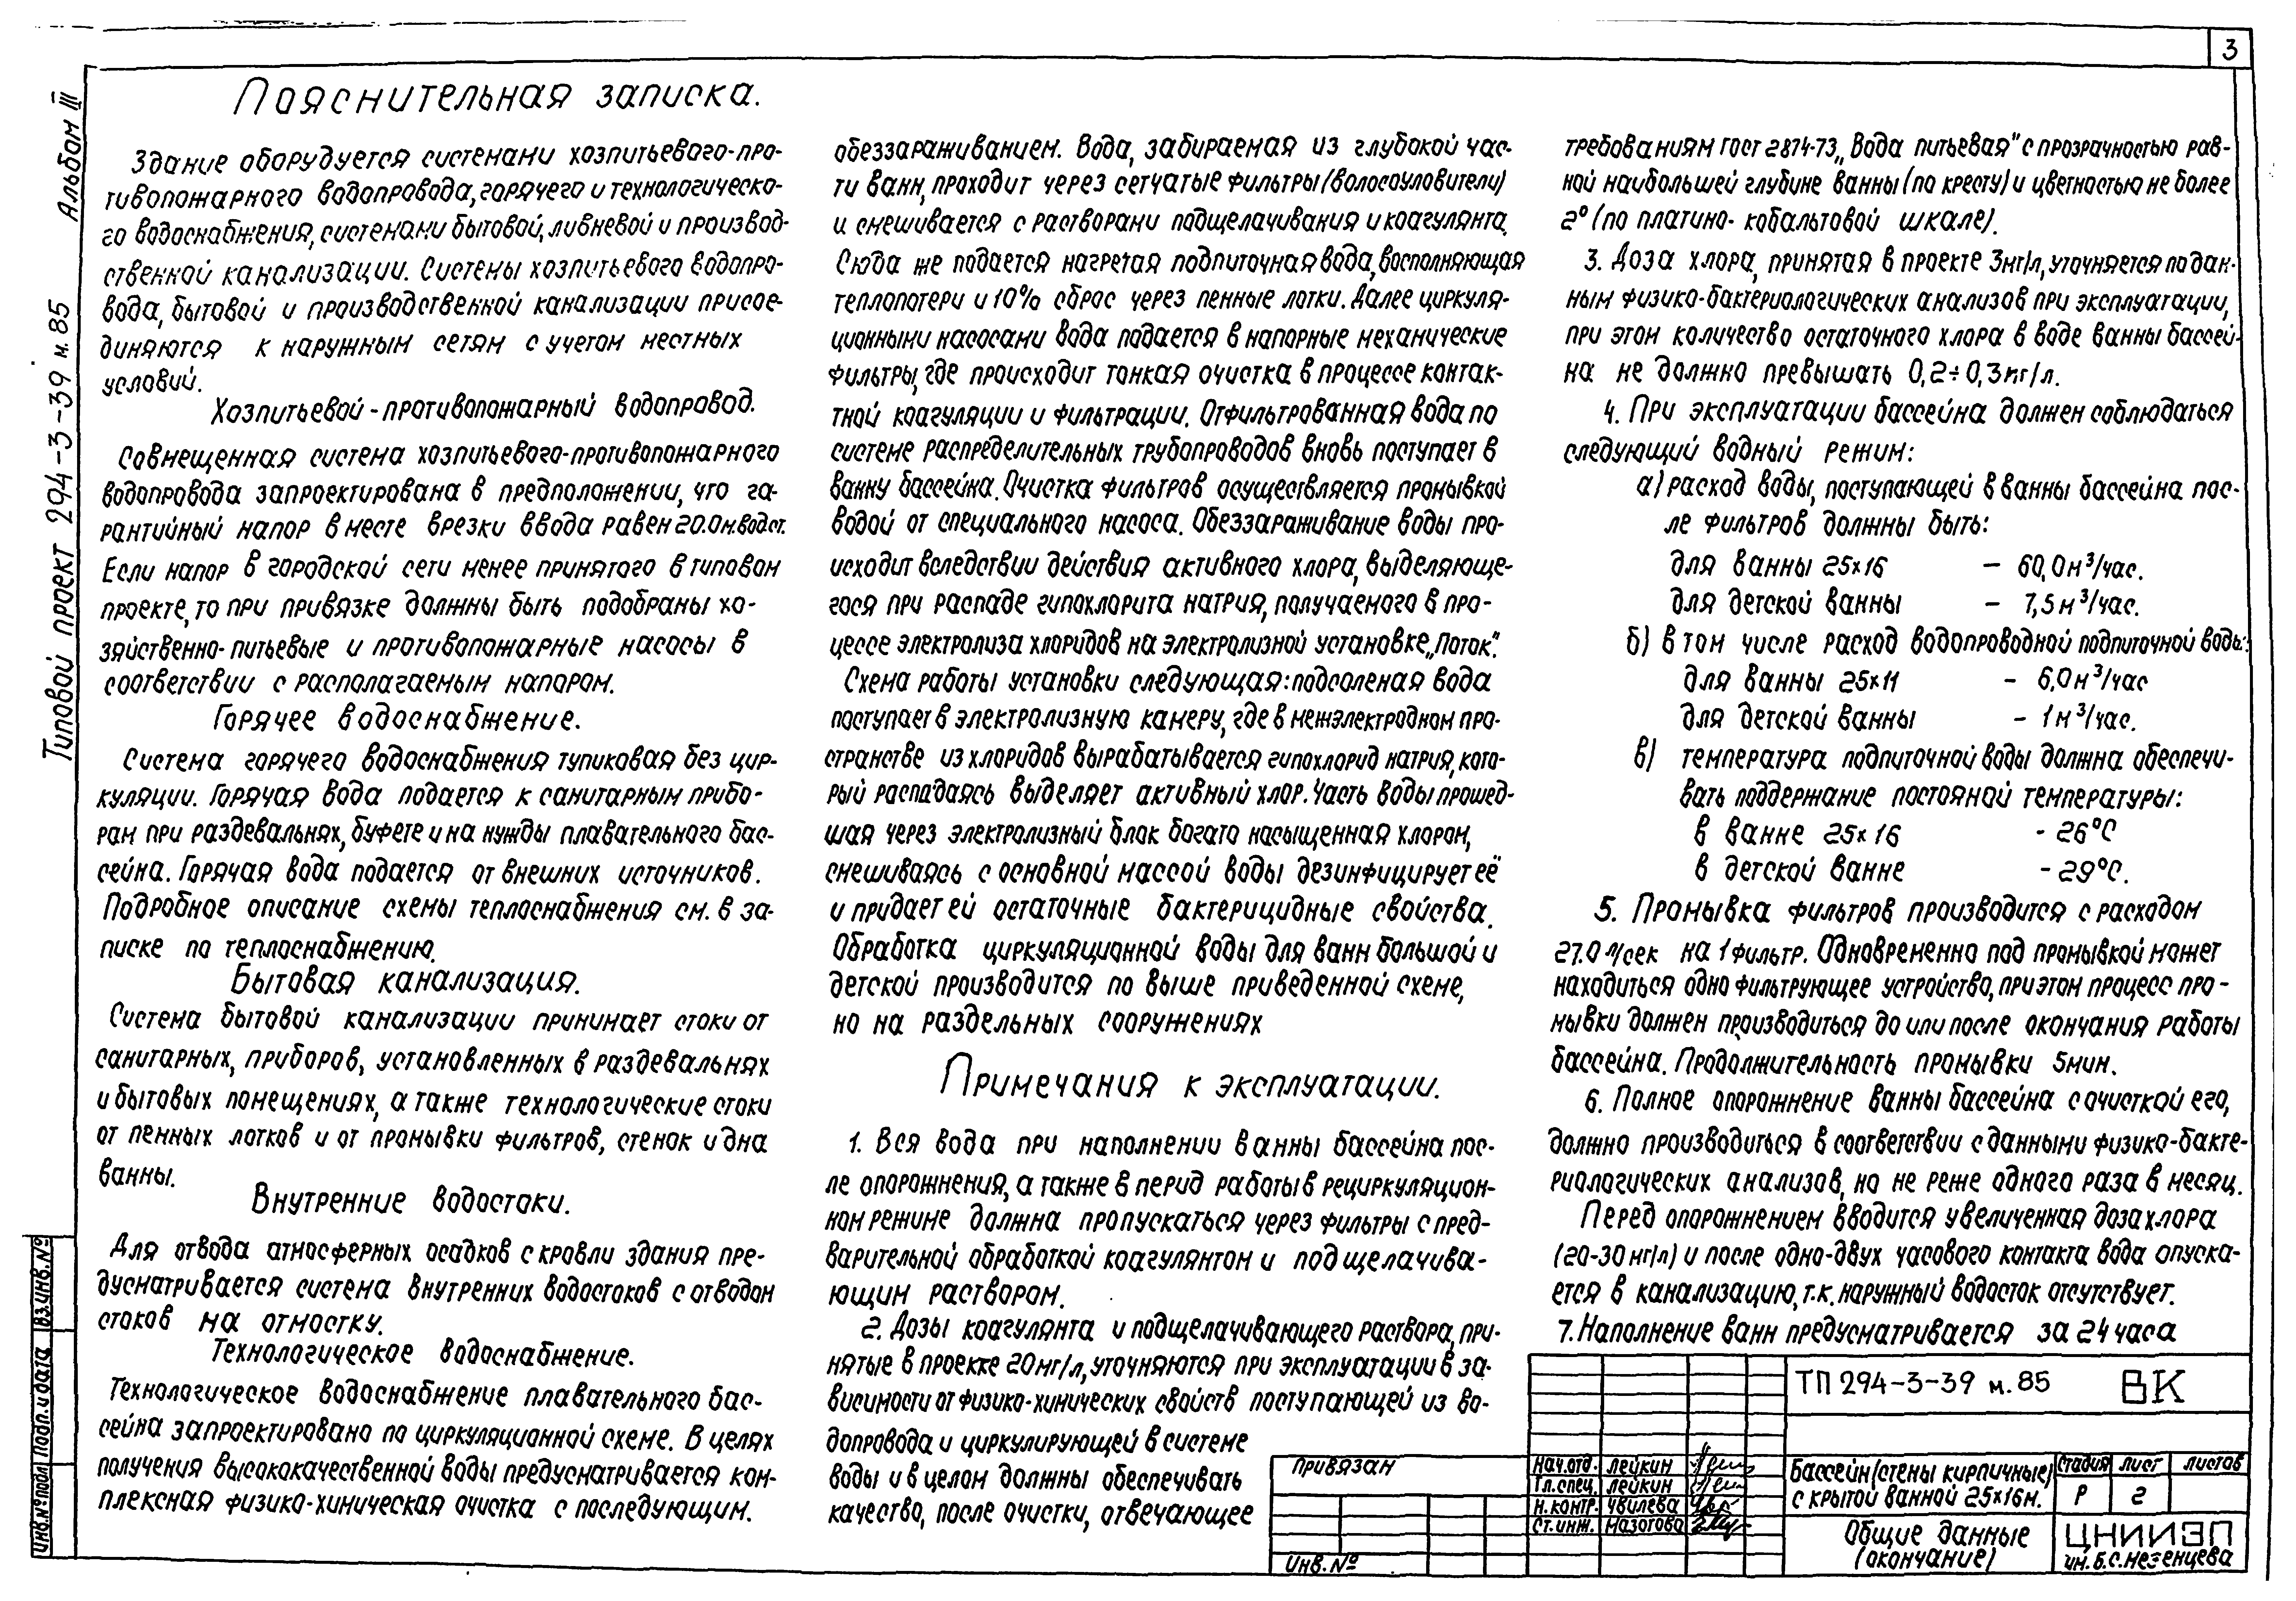 3
Альбом III
Типовой проект 294-3-39 м.85
Пояснительная записка.
Здание оборудуется системами хозпитьевого-про-
тивопожарного водопровода, горячего и технологическо-
го водоснабжения, системами бытовой, ливневой и производ-
ственной канализации. Системы хозпитьевого водопро-
вода, бытовой и производственной канализации присое-
диняются к наружным сетям с учетом местных
условий.
Хозпитьевой-противопожарный водопровод.
Совмещенная система хозпитьевого-противопожарного
водопровода запроектирована в предположении, что га-
рантийный напор в месте врезки ввода равен 20.0м.вод.ст.
Если напор в городской сети менее принятого в типовом
проекте, то при привязке должны быть подобраны хо-
зяйственно-питьевые и противопожарные насосы в
соответствии с располагаемым напором.
Горячее водоснабжение.
Система горячего водоснабжения тупиковая без цир-
куляции. Горячая вода подается к санитарным прибо-
рам при раздевальнях, буфете и на нужды плавательного бас-
сейна. Горячая вода подается от внешних источников.
Подробное описание схемы теплоснабжения см. в за-
писке по теплоснабжению.
Бытовая канализация.
Система бытовой канализации принимает стоки от
санитарных, приборов, установленных в раздевальнях
и бытовых помещениях, а также технологические стоки
от пенных лотков и от промывки фильтров, стенок и дна
ванны.
Внутренние водостоки.
Для отвода атмосферных осадков с кровли здания пре-
дусматривается система внутренних водостоков с отводом
стоков на отмостку.
Технологическое водоснабжение.
Технологическое водоснабжение плавательного бас-
сейна запроектировано по циркуляционной схеме. В целях
получения высококачественной воды предусматривается ком-
плексная физико-химическая очистка с последующим.
обеззараживанием. Вода, забираемая из глубокой час-
ти ванн, проходит через сетчатые фильтры (волосоуловители)
и смешивается с растворами подщелачивания и коагулянта.
Сюда же подается нагретая подпиточная вода, восполняющая
теплопотери и 10% сброс через пенные лотки. Далее циркуля-
ционными насосами вода подается в напорные механические
фильтры, где происходит тонкая очистка в процессе контак-
тной коагуляции и фильтрации. Отфильтрованная вода по
системе распределительных трубопроводов вновь поступает в
ванну бассейна. Очистка фильтров осуществляется промывкой
водой от специального насоса. Обеззараживание воды про-
исходит вследствии действия активного хлора, выделяюще-
гося при распаде гипохлорита натрия, получаемого в про-
цессе электролиза хлоридов на электролизной установке „Поток".
Схема работы установки следующая: подсоленая вода
поступает в электролизную камеру, где в межэлектродном про-
странстве из хлоридов вырабатывается гипохлорид натрия, кото-
рый распадаясь выделяет активный хлор. Часть воды прошед-
шая через электролизный блок богато насыщенная хлором,
смешиваясь с основной массой воды дезинфицирует её
и придает ей остаточные бактерицидные свойства.
Обработка циркуляционной воды для ванн большой и
детской производится по выше приведенной схеме,
но на раздельных сооружениях
Примечания к эксплуатации.
1. Вся вода при наполнении ванны бассейна пос-
ле опорожнения, а также в перид работы в рециркуляцион-
ном режиме должна пропускаться через фильтры с пред-
варительной обработкой коагулянтом и подщелачива-
ющим раствором.
2. Дозы коагулянта и подщелачивающего раствора, при-
нятые в проекте 20мг/л, уточняются при эксплуатации в за-
висимости от физико-химических свойств поступающей из во-
допровода и циркулирующей в системе
воды и в целом должны обеспечивать
качество, после очистки, отвечающее
требованиям ГОСТ 2874-73 „Вода питьевая" с прозрачностью рав-
ной наибольшей глубине ванны (по кресту) и цветностью не более
2° (по платино-кобальтовой шкале).
3. Доза хлора, принятая в проекте 3мг/л, уточняется по дан-
ным физико-бактериологических анализов при эксплуатации,
при этом количество остаточного хлора в воде ванны бассей-
на не должно превышать 0,2÷0,3мг/л.
4. При эксплуатации бассейна должен соблюдаться
следующий водный режим:
а) расход воды, поступающей в ванны бассейна пос-
ле фильтров должны быть:
для ванны 25×16 – 60,0м³/час.
для детской ванны – 7,5м³/час.
б) в том числе расход водопроводной подпиточной воды:
для ванны 25×11 – 6,0м³/час
для детской ванны – 1м³/час.
в) температура подпиточной воды должна обеспечи-
вать поддержание постоянной температуры:
в ванне 25×16 - 26°С
в детской ванне - 29°С.
5. Промывка фильтров производится с расходом
27.0 л/сек на 1 фильтр. Одновременно под промывкой может
находиться одно фильтрующее устройство, при этом процесс про-
мывки должен производиться до или после окончания работы
бассейна. Продолжительность промывки 5мин.
6. Полное опорожнение ванны бассейна с очисткой его,
должно производиться в соответствии с данными физико-бакте-
риологических анализов, но не реже одного раза в месяц.
Перед опорожнением вводится увеличенная доза хлора
(20-30мг/л) и после одно-двух часового контакта вода опуска-
ется в канализацию, т.к. наружный водосток отсутствует.
7. Наполнение ванн предусматривается за 24 часа
ТП 294-3-39 м.85 ВК
Привязан
Инв.№
Нач.отд. Лейкин
Гл.спец. Лейкин
Н.контр. Чвилева
Ст.инж. Мазотова
Бассейн (стены кирпичные)
с крытой ванной 25×16м.
Стадия Лист Листов
Р 2
Общие данные
(окончание)
ЦНИИЭП
им. Б.С.Мезенцева
Инв.№подл Подп. и дата Вз.инв.№